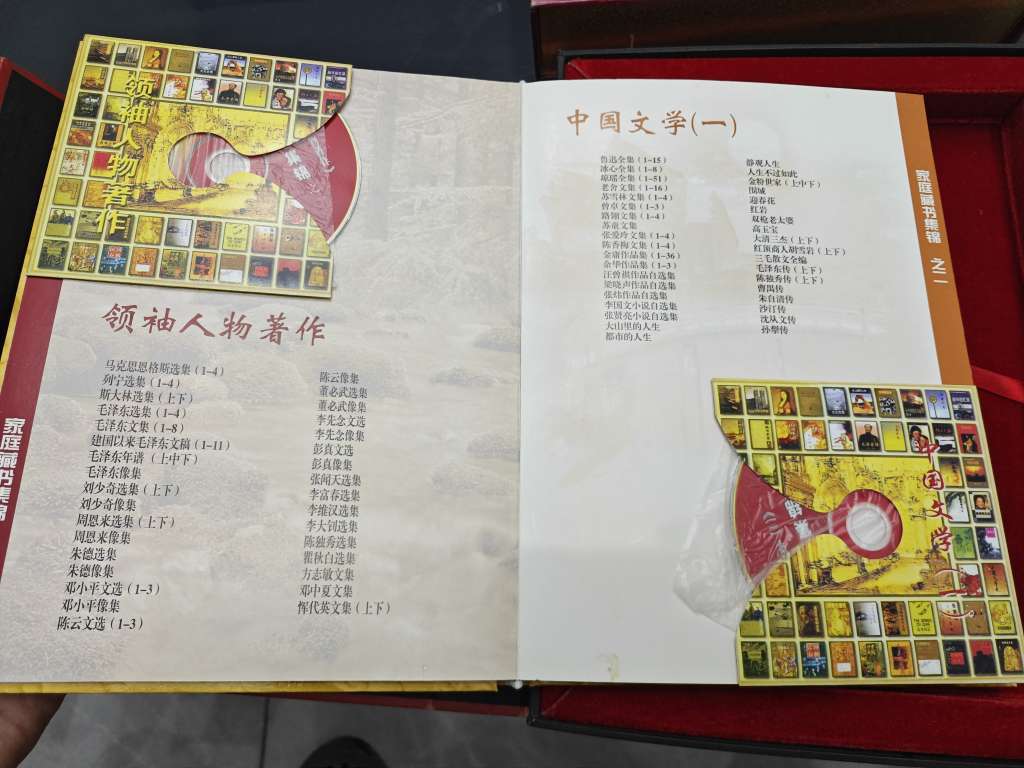 领袖人物著作
领袖人物著作
马克思恩格斯选集(1-4)
列宁选集(1-4)
斯大林选集(上下)
毛泽东选集(1-4)
毛泽东文集(1-8)
建国以来毛泽东文稿(1-11)
毛泽东年谱(上中下)
毛泽东像集
刘少奇选集(上下)
刘少奇像集
周恩来选集(上下)
周恩来像集
朱德选集
朱德像集
邓小平文选(1-3)
邓小平像集
陈云文选(1-3)
陈云像集
董必武选集
董必武像集
李先念文选
李先念像集
彭真文选
彭真像集
张闻天选集
李富春选集
李维汉选集
李大钊选集
陈独秀选集
瞿秋白选集
方志敏文集
邓中夏文集
恽代英文集(上下)
家庭藏书集锦
中国文学(一)
鲁迅全集(1-15)
冰心全集(1-8)
琼瑶全集(1-51)
老舍文集(1-16)
苏雪林文集(1-4)
曾卓文集(1-3)
路翎文集(1-4)
苏童文集
张爱玲文集(1-4)
陈香梅文集(1-4)
金庸作品集(1-36)
余华作品集(1-3)
汪曾祺作品自选集
梁晓声作品自选集
张炜作品自选集
李国文小说自选集
张贤亮小说自选集
大山里的人生
都市的人生
静观人生
人生不过如此
金粉世家(上中下)
围城
迎春花
红岩
双枪老太婆
高玉宝
大清三杰(上下)
红顶商人胡雪岩(上下)
三毛散文全编
毛泽东传(上下)
陈独秀传(上下)
曹禺传
朱自清传
沙汀传
沈从文传
孙犁传
家庭藏书集锦 之二
中国文学(一)